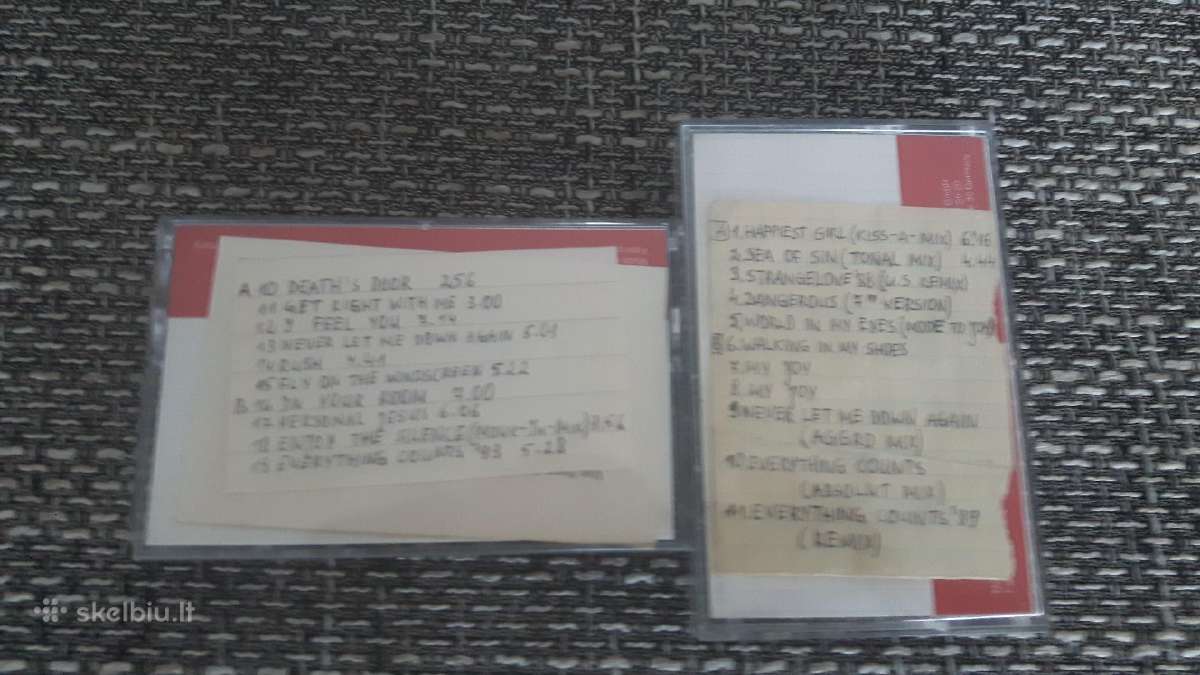 A. 10 DEATH'S DOOR 2.56
11 GET RIGHT WITH ME 3.00
12 I FEEL YOU 7.14
13 NEVER LET ME DOWN AGAIN 5.01
14 RUSH 4.41
15 FLY ON THE WINDSCREEN 5.22
B. 16 IN YOUR ROOM 7.00
17 PERSONAL JESUS 6.06
18 ENJOY THE SILENCE
19 EVERYTHING COUNTS '93 5.28
A 1. HAPPIEST GIRL (KISS-A-MIX) 6.16
2. SEA OF SIN (TONAL MIX) 4.44
3. STRANGELOVE '88 (U.S. REMIX)
4. DANGEROUS (7" VERSION)
5. WORLD IN MY EYES (MODE TO JOY)
B 6. WALKING IN MY SHOES
7. MY JOY
8. MY JOY
9 NEVER LET ME DOWN AGAIN
(AGGRO MIX)
10. EVERYTHING COUNTS
(ABSOLUT MIX)
11. EVERYTHING COUNTS '89
(REMIX)
skelbiu.lt